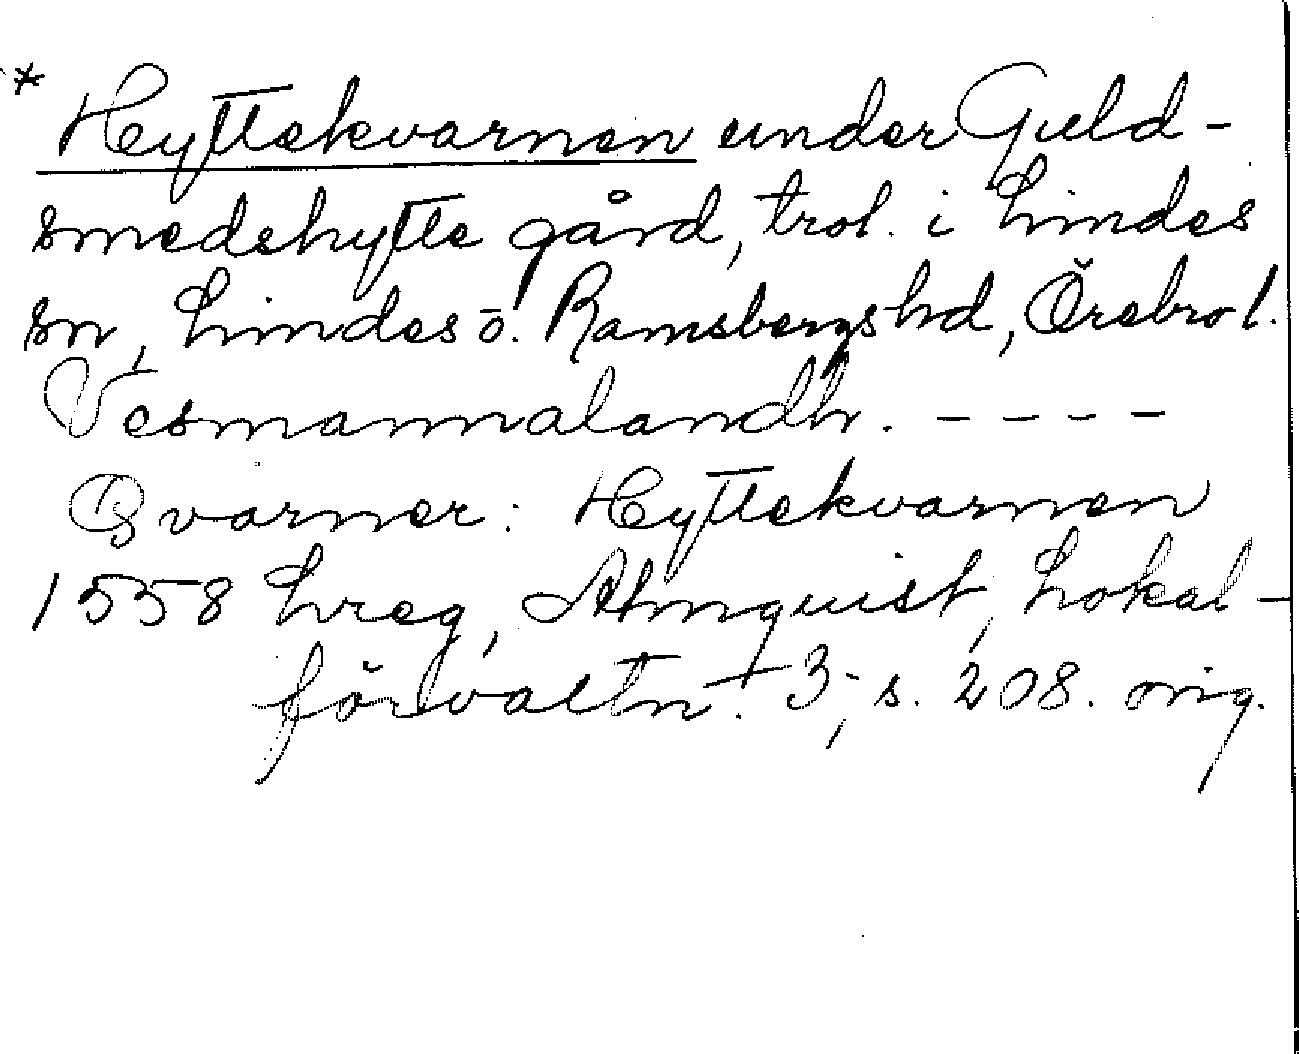 * Hyttekvarnen under Guld-
smedshytte gård, trol. i Lindes
sn, Lindes o. Ramsbergs hd, Örebro l.
Vesmannalandh. - - - -
Qvarner: Hyttekvarnen
1558 Lreg, Almquist, Lokal-
förvaltn. 3, s. 208. orig.